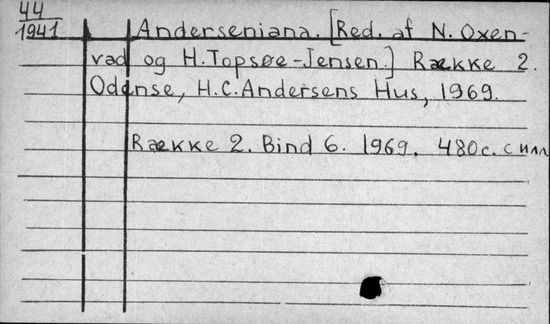 44
1941
Anderseniana. [Red. af N. Oxen-
vad og H. Topsøe-Jensen.] Række 2.
Odense, H.C. Andersens Hus, 1969.
Række 2. Bind 6. 1969. 480с. с илл